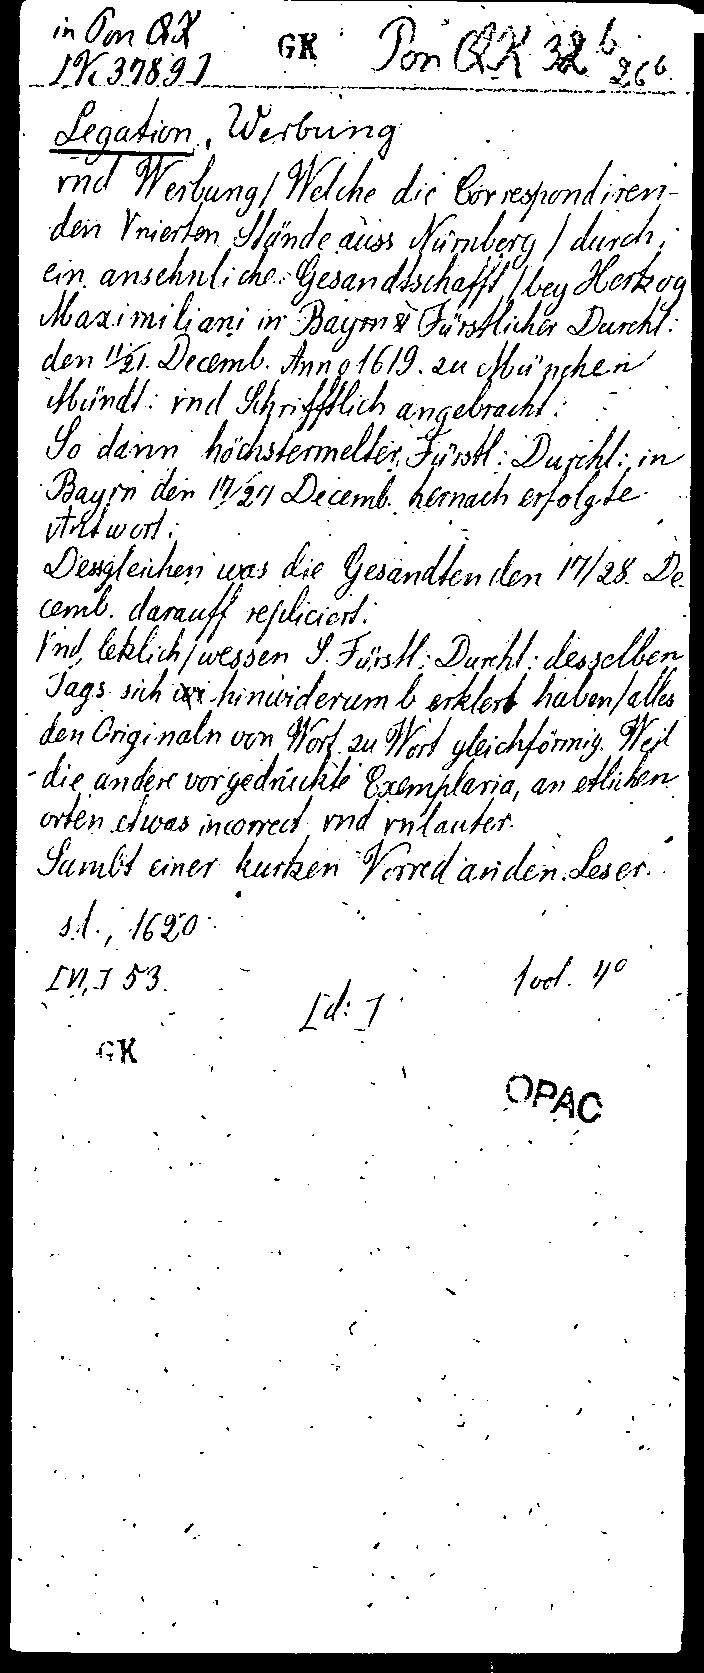 in Pon QK GK Pon QK 32 b
[K 3789] 26 b
Legation, Werbung
vnd Werbung / Welche die Correspondiren-
den Vnierten Stände auss Nürnberg / durch
ein ansehnliche Gesandtschafft / bey Hertzog
Maximiliani in Bayrn Fürstlicher Durchl:
den 11/21. Decemb. Anno 1619. zu München
Mündt: vnd Schrifftlich angebracht:
So dann höchstermelter Fürstl: Durchl: in
Bayrn den 17/27 Decemb. hernach erfolgte
Antwort:
Dessgleichen was die Gesandten den 17/28. De
cemb. darauff repliciert:
Vnd letzlich / wessen S. Fürstl: Durchl: desselben
Tags sich hinwiderumb erklert haben / alles
den Originaln von Wort zu Wort gleichförmig. Weil
die andere vorgedruckte Exemplaria, an etlichen
orten etwas incorrect vnd vnlauter.
Sambt einer kurtzen Vorred an den Leser.
s.l., 1620
[VI,] 53. 1 vol. 4°
[d: ]
GK
OPAC